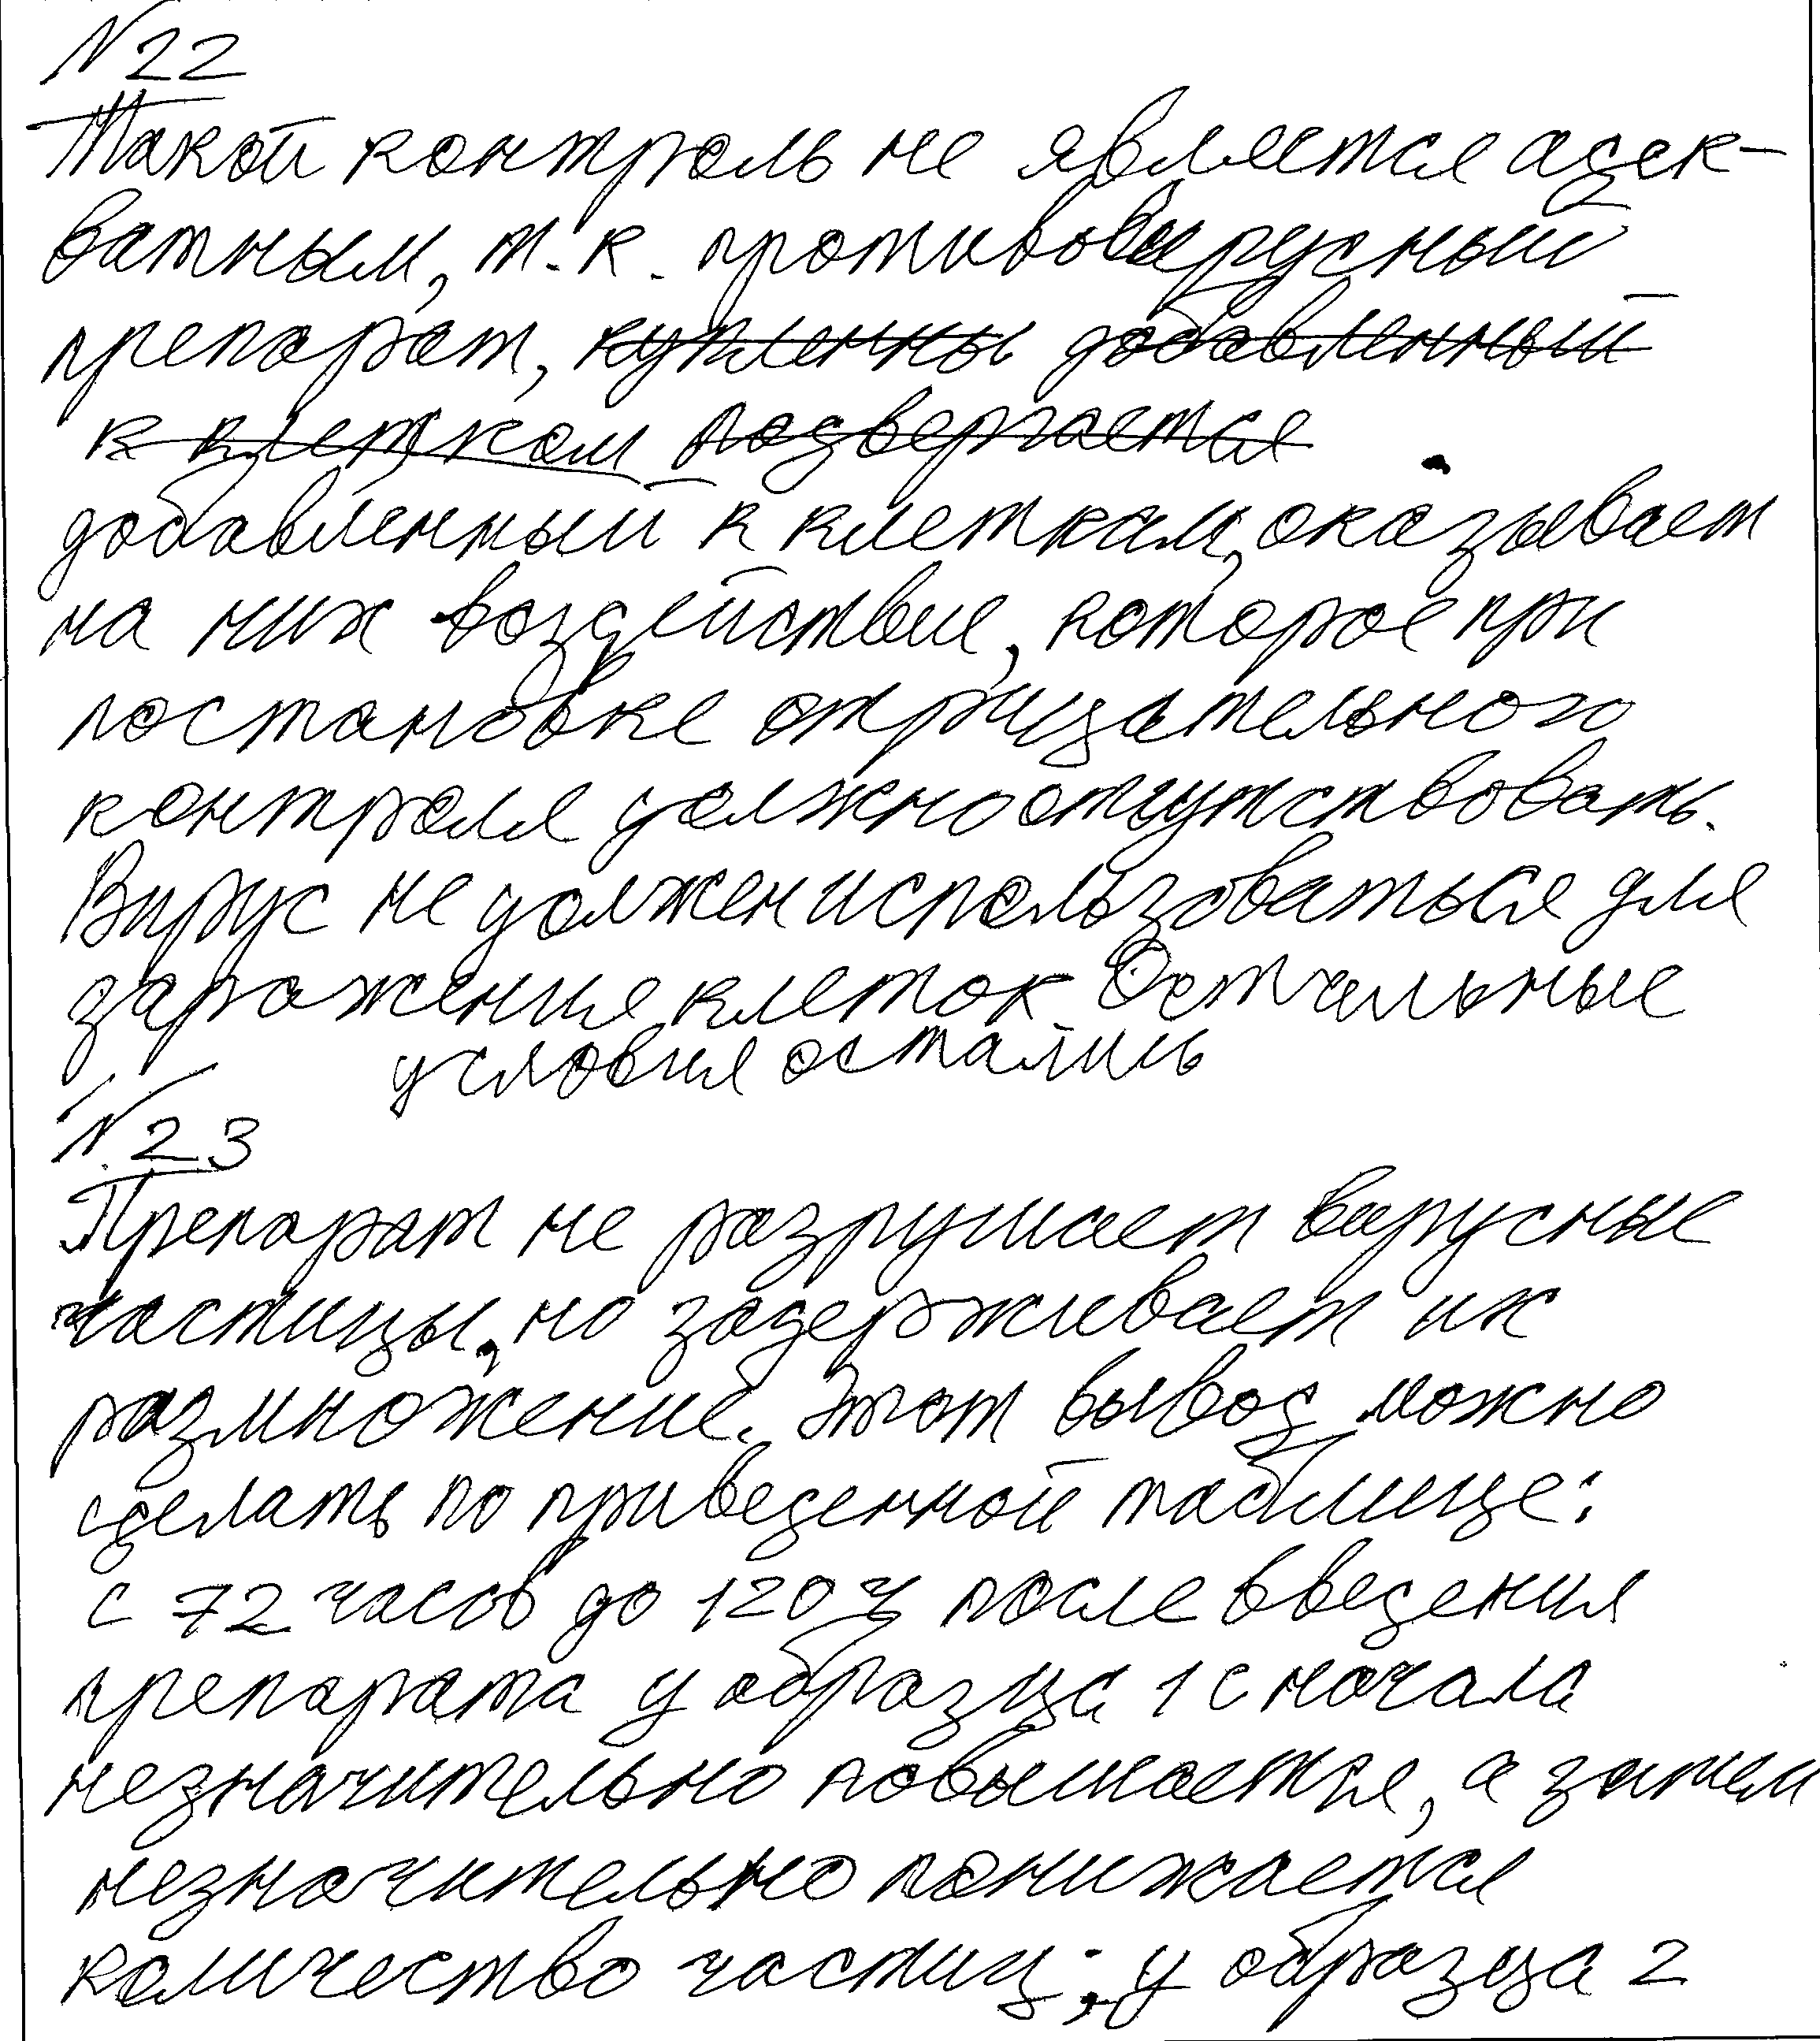 N 22
Такой контроль не является адек-
ватным, т.к. противовирусный
препарат, купленны добавленный
к клеткам подвергается
добавленный к клеткам, оказывает
на них воздействие, которое при
постановке отрицательного
контроля должно отсутствовать.
Вирус не должен использоваться для
заражения клеток. Остальные
условия остались
N 23
Препарат не разрушает вирусные
частицы, но задерживает их
размножение. Этот вывод можно
сделать по приведенной таблице:
с 72 часов до 120 ч после введения
препарата у образца 1 сначала
незначительно повышается, а затем
незначительно понижается
количество частиц; у образца 2